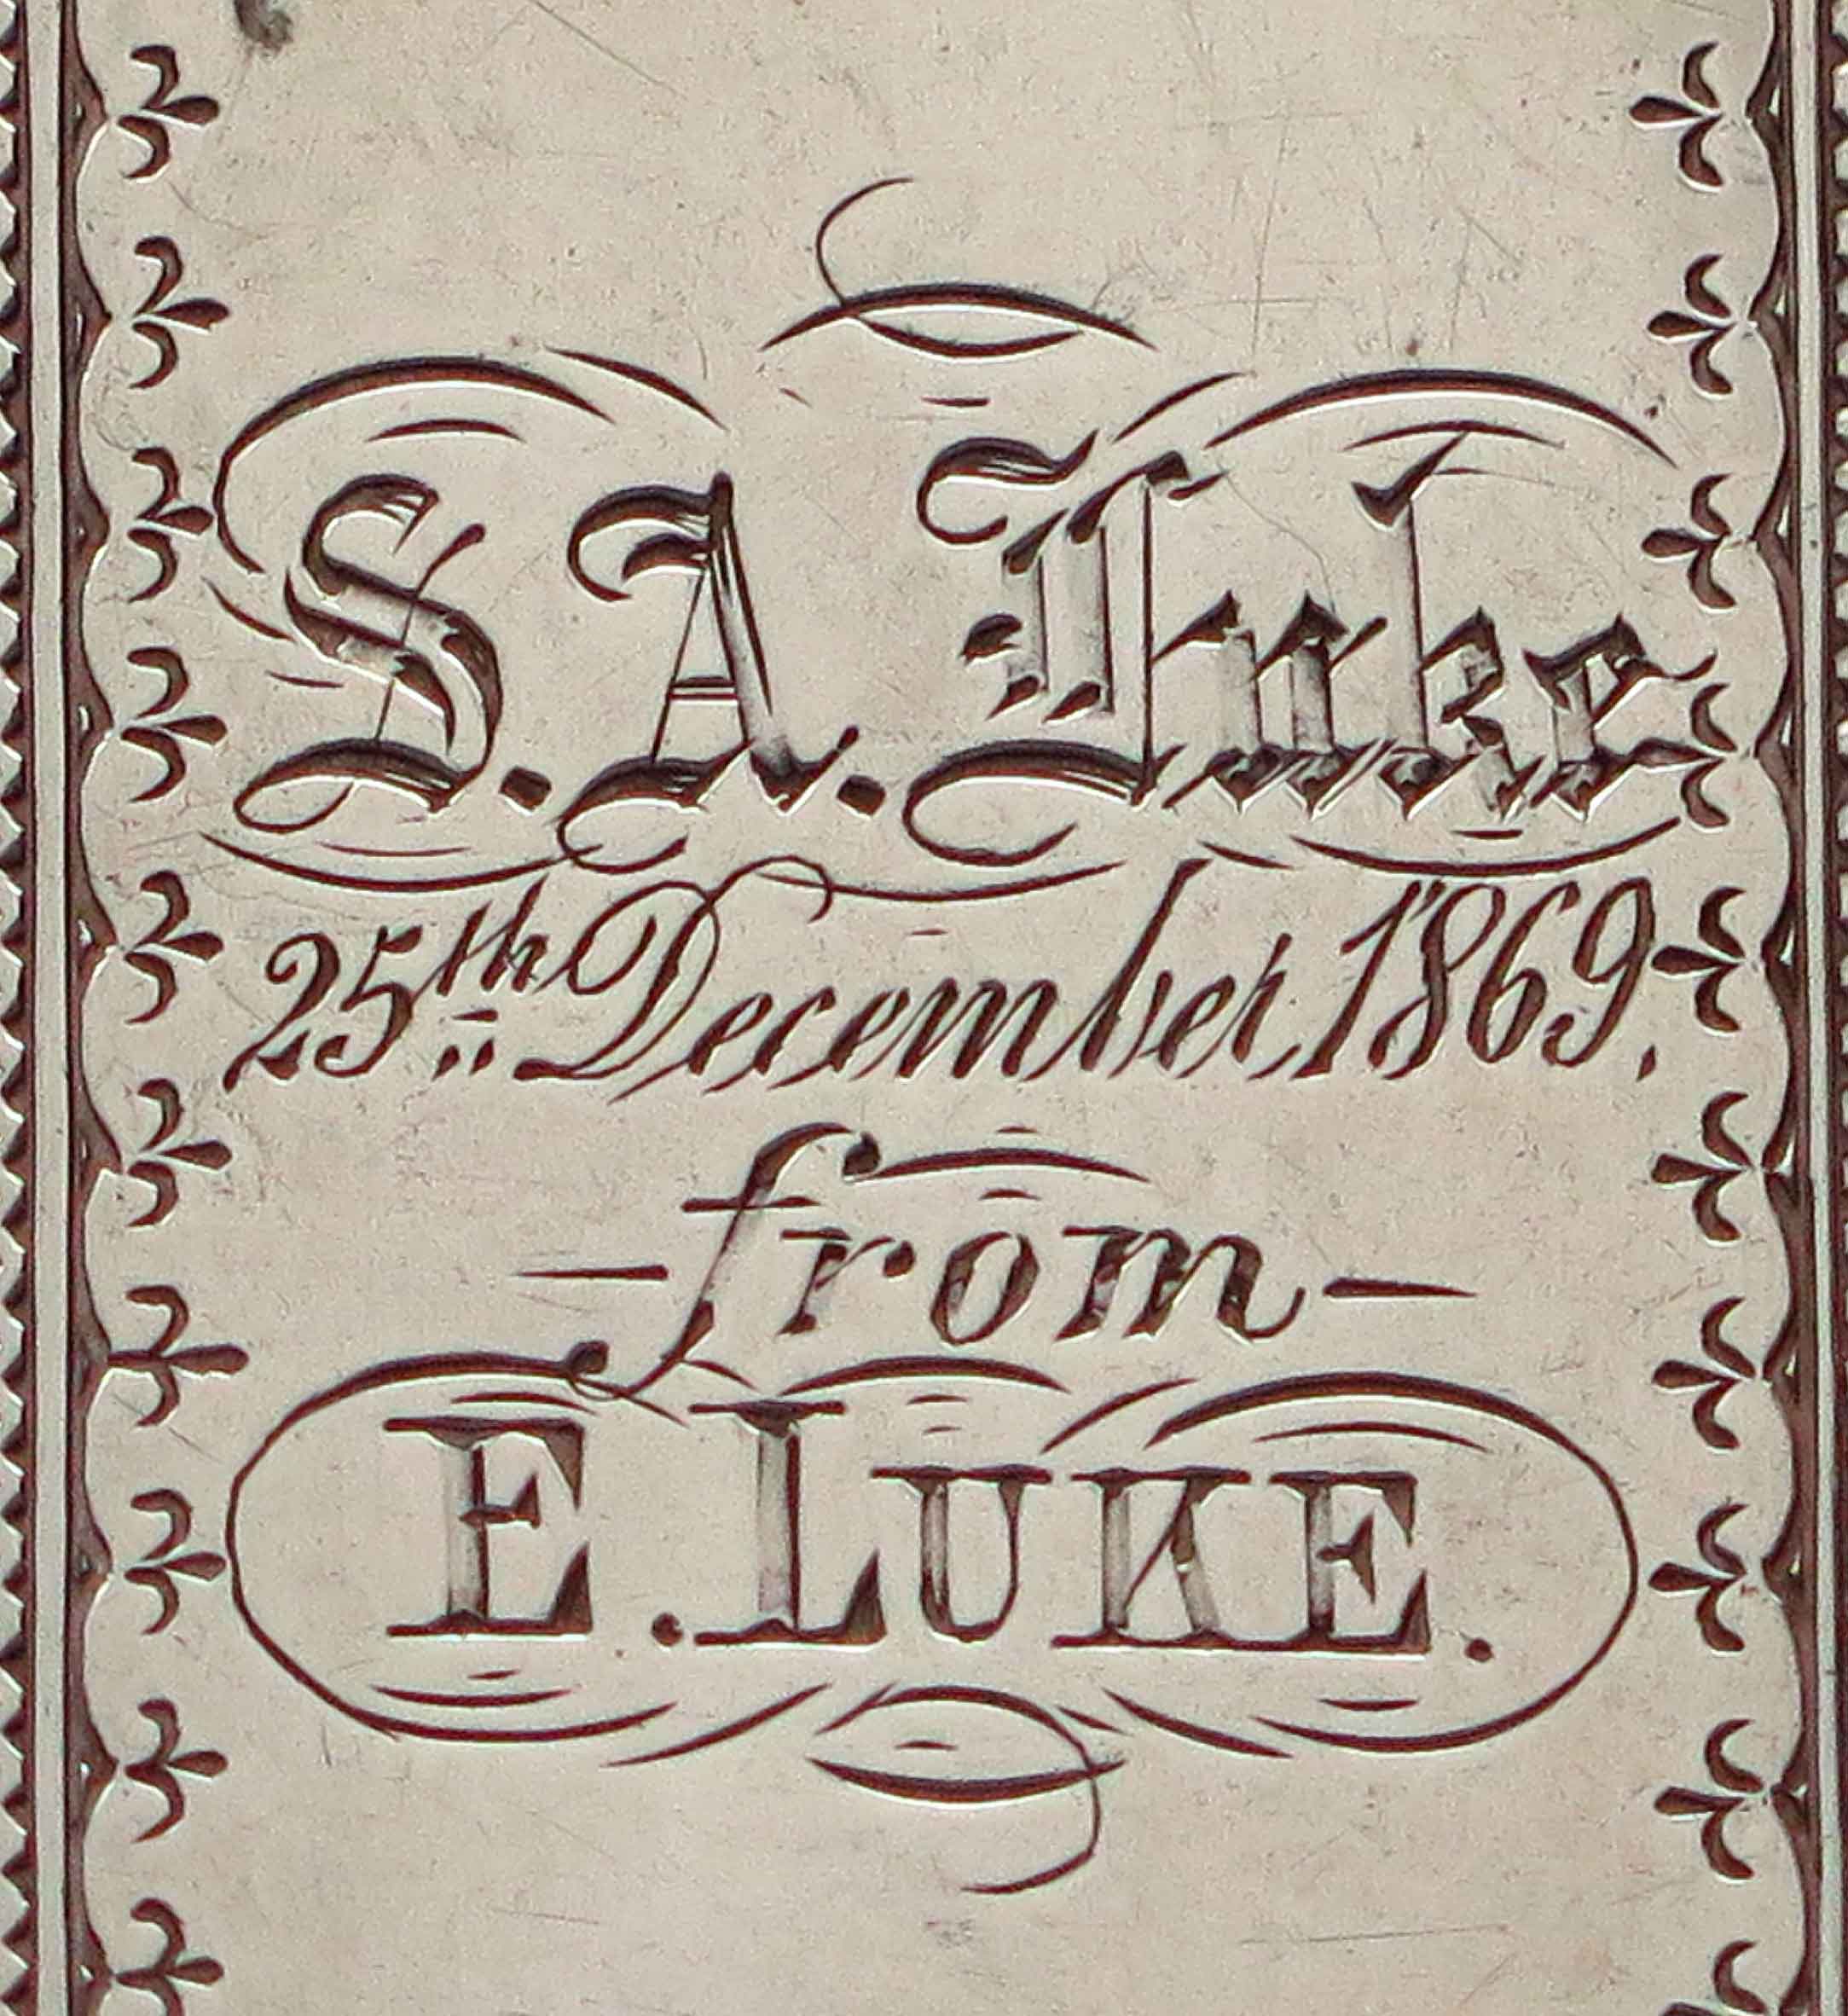 S. A. Luke
25th December 1869.
from
E. LUKE.